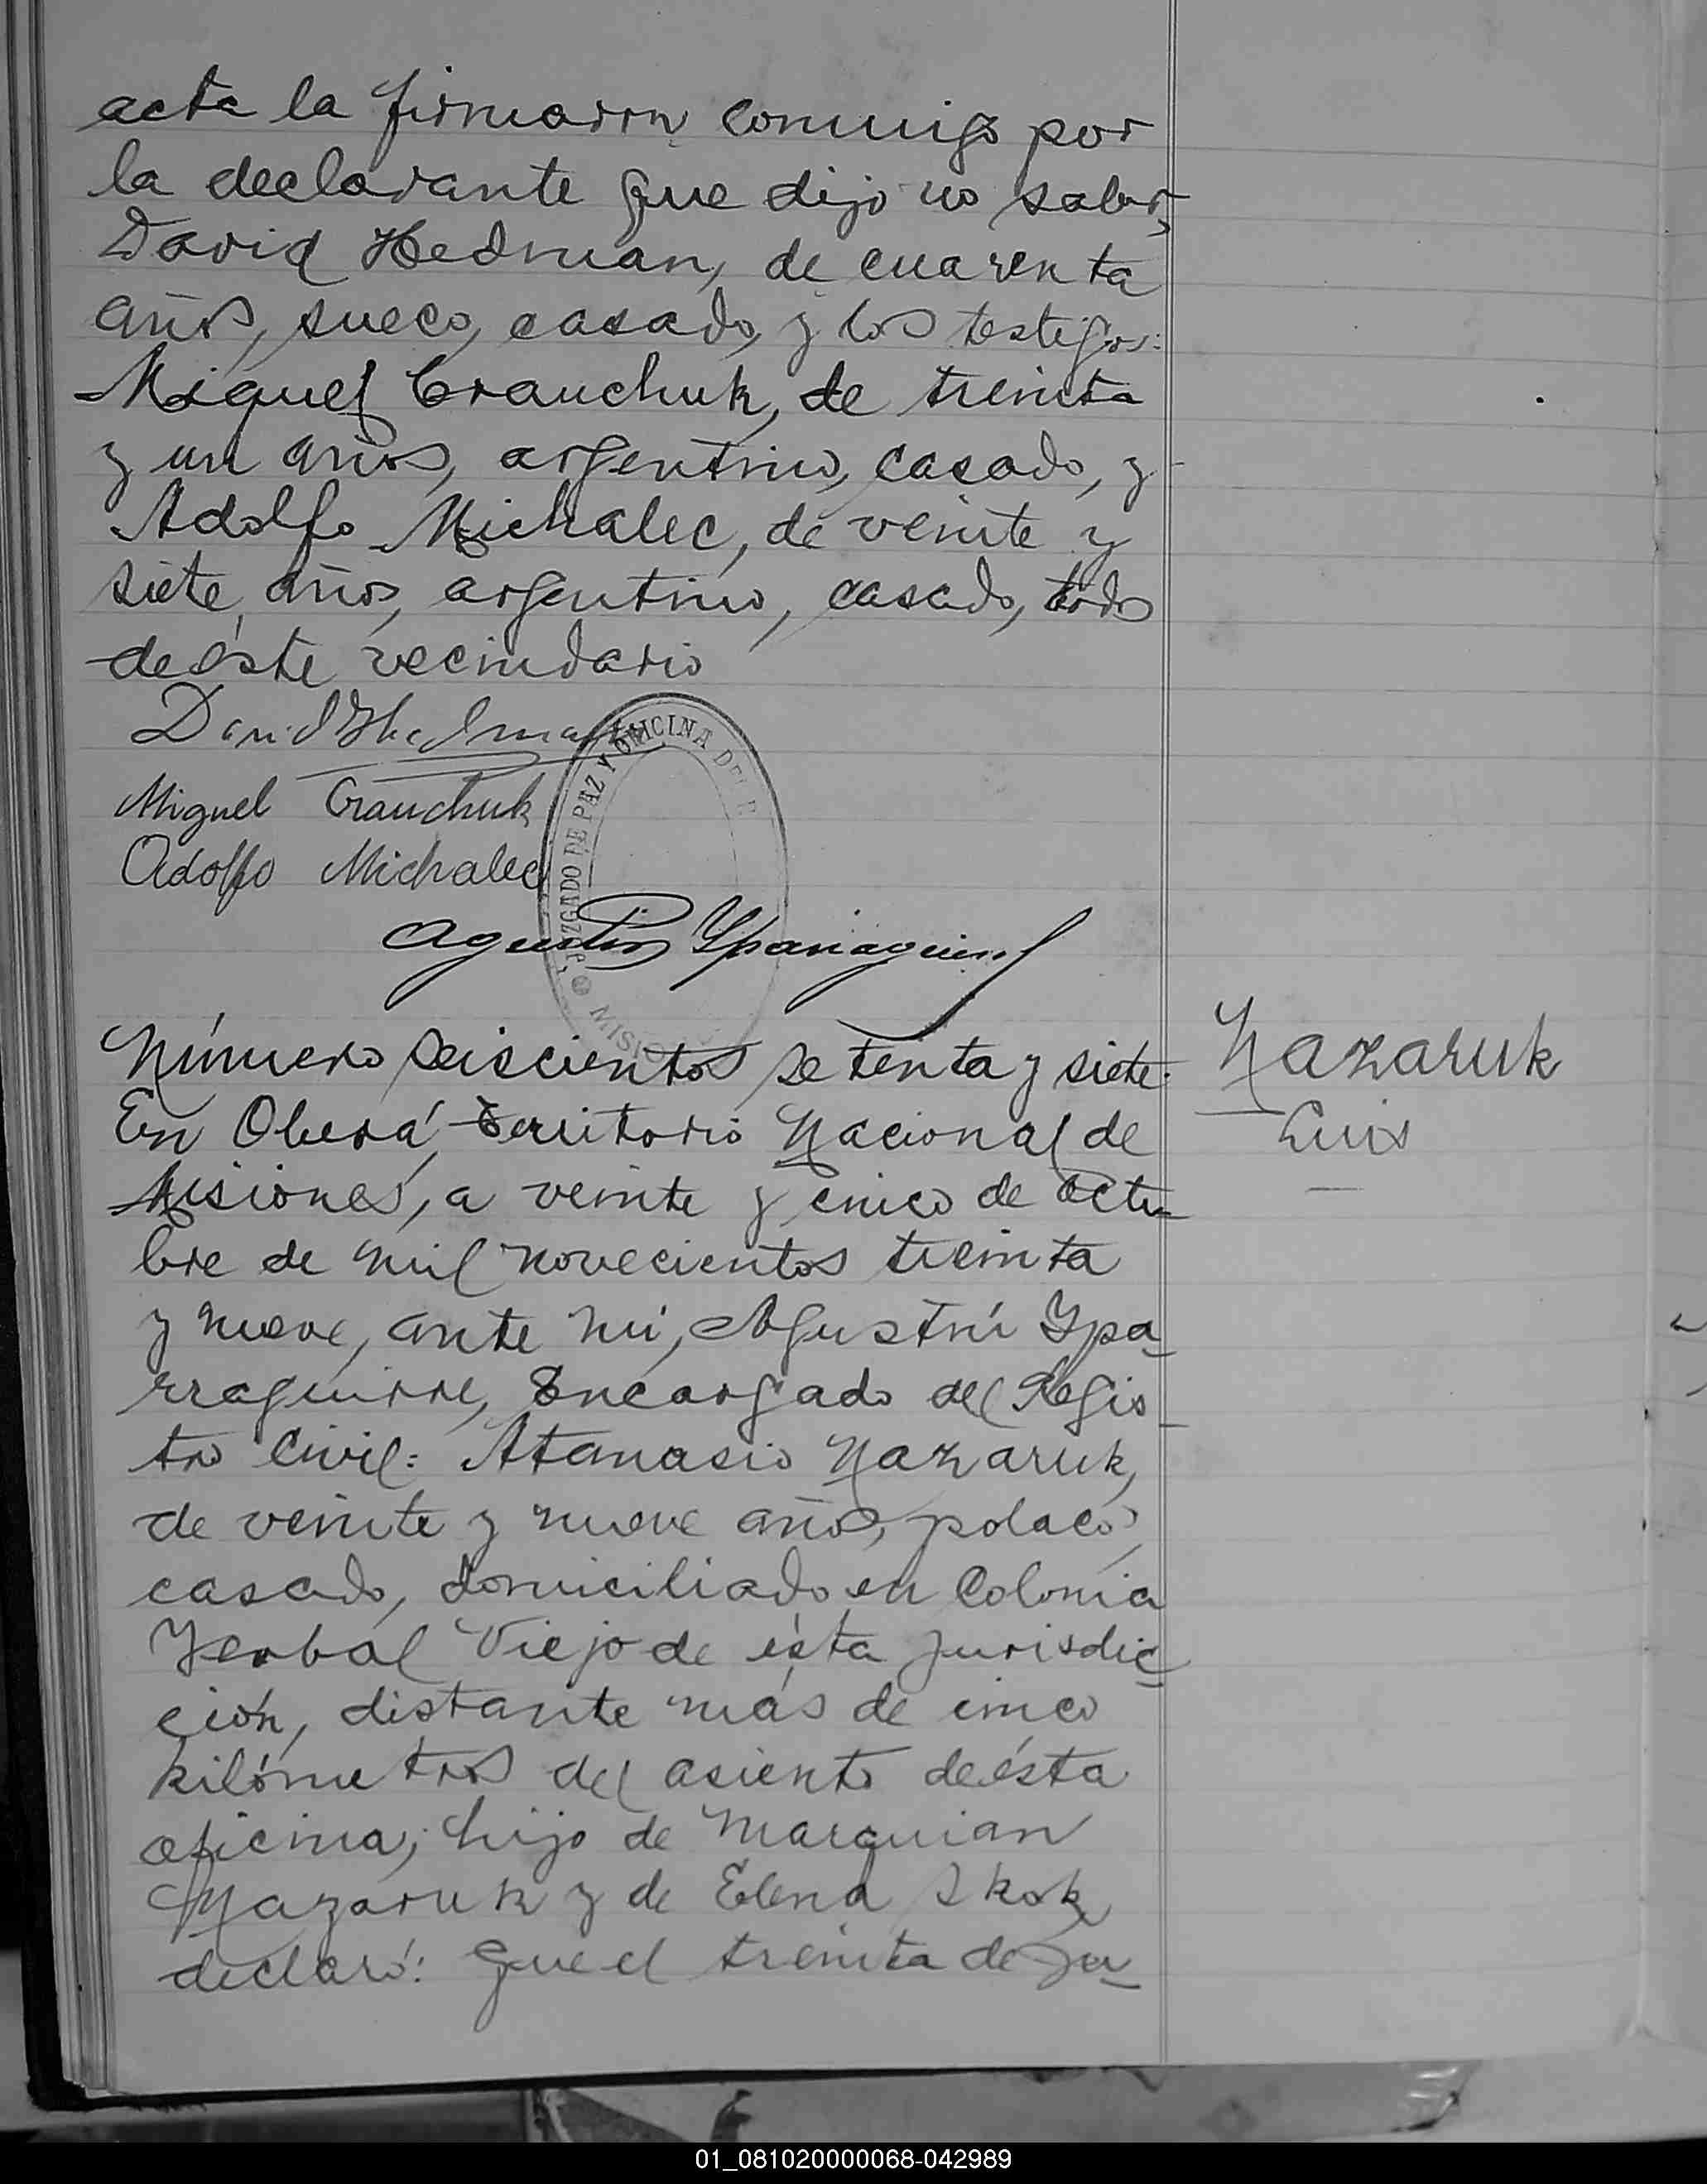 acta la firmaron conmigo por
la declarante que dijo no saber,
David Hedman, de cuarenta
años, sueco, casado, y los testigos:
Miguel Crauchuk, de treinta
y un años, argentino, casado, y
Adolfo Michalec, de veinte y
siete años, argentino, casado, todos
de éste vecindario
David Hedman
Miguel Crauchuk
Adolfo Michalec
JUZGADO DE PAZ Y OFICINA DEL R
MISIO
Agustin Yparraguirre
Número seiscientos setenta y siete.
En Oberá, Territorio Nacional de
Misiones, a veinte y cinco de octu-
bre de mil novecientos treinta
y nueve, ante mí, Agustín Ypa-
rraguirre, Encargado del Regis-
tro Civil: Atanasio Nazaruk,
de veinte y nueve años, polaco,
casado, domiciliado en Colonia
Yerbal Viejo de ésta jurisdic-
ción, distante más de cinco
kilómetros del asiento de ésta
oficina; hijo de Marquian
Nazaruk y de Elena Skok
declaró: Que el treinta de Ju-
Nazaruk
Luis
01_081020000068-042989